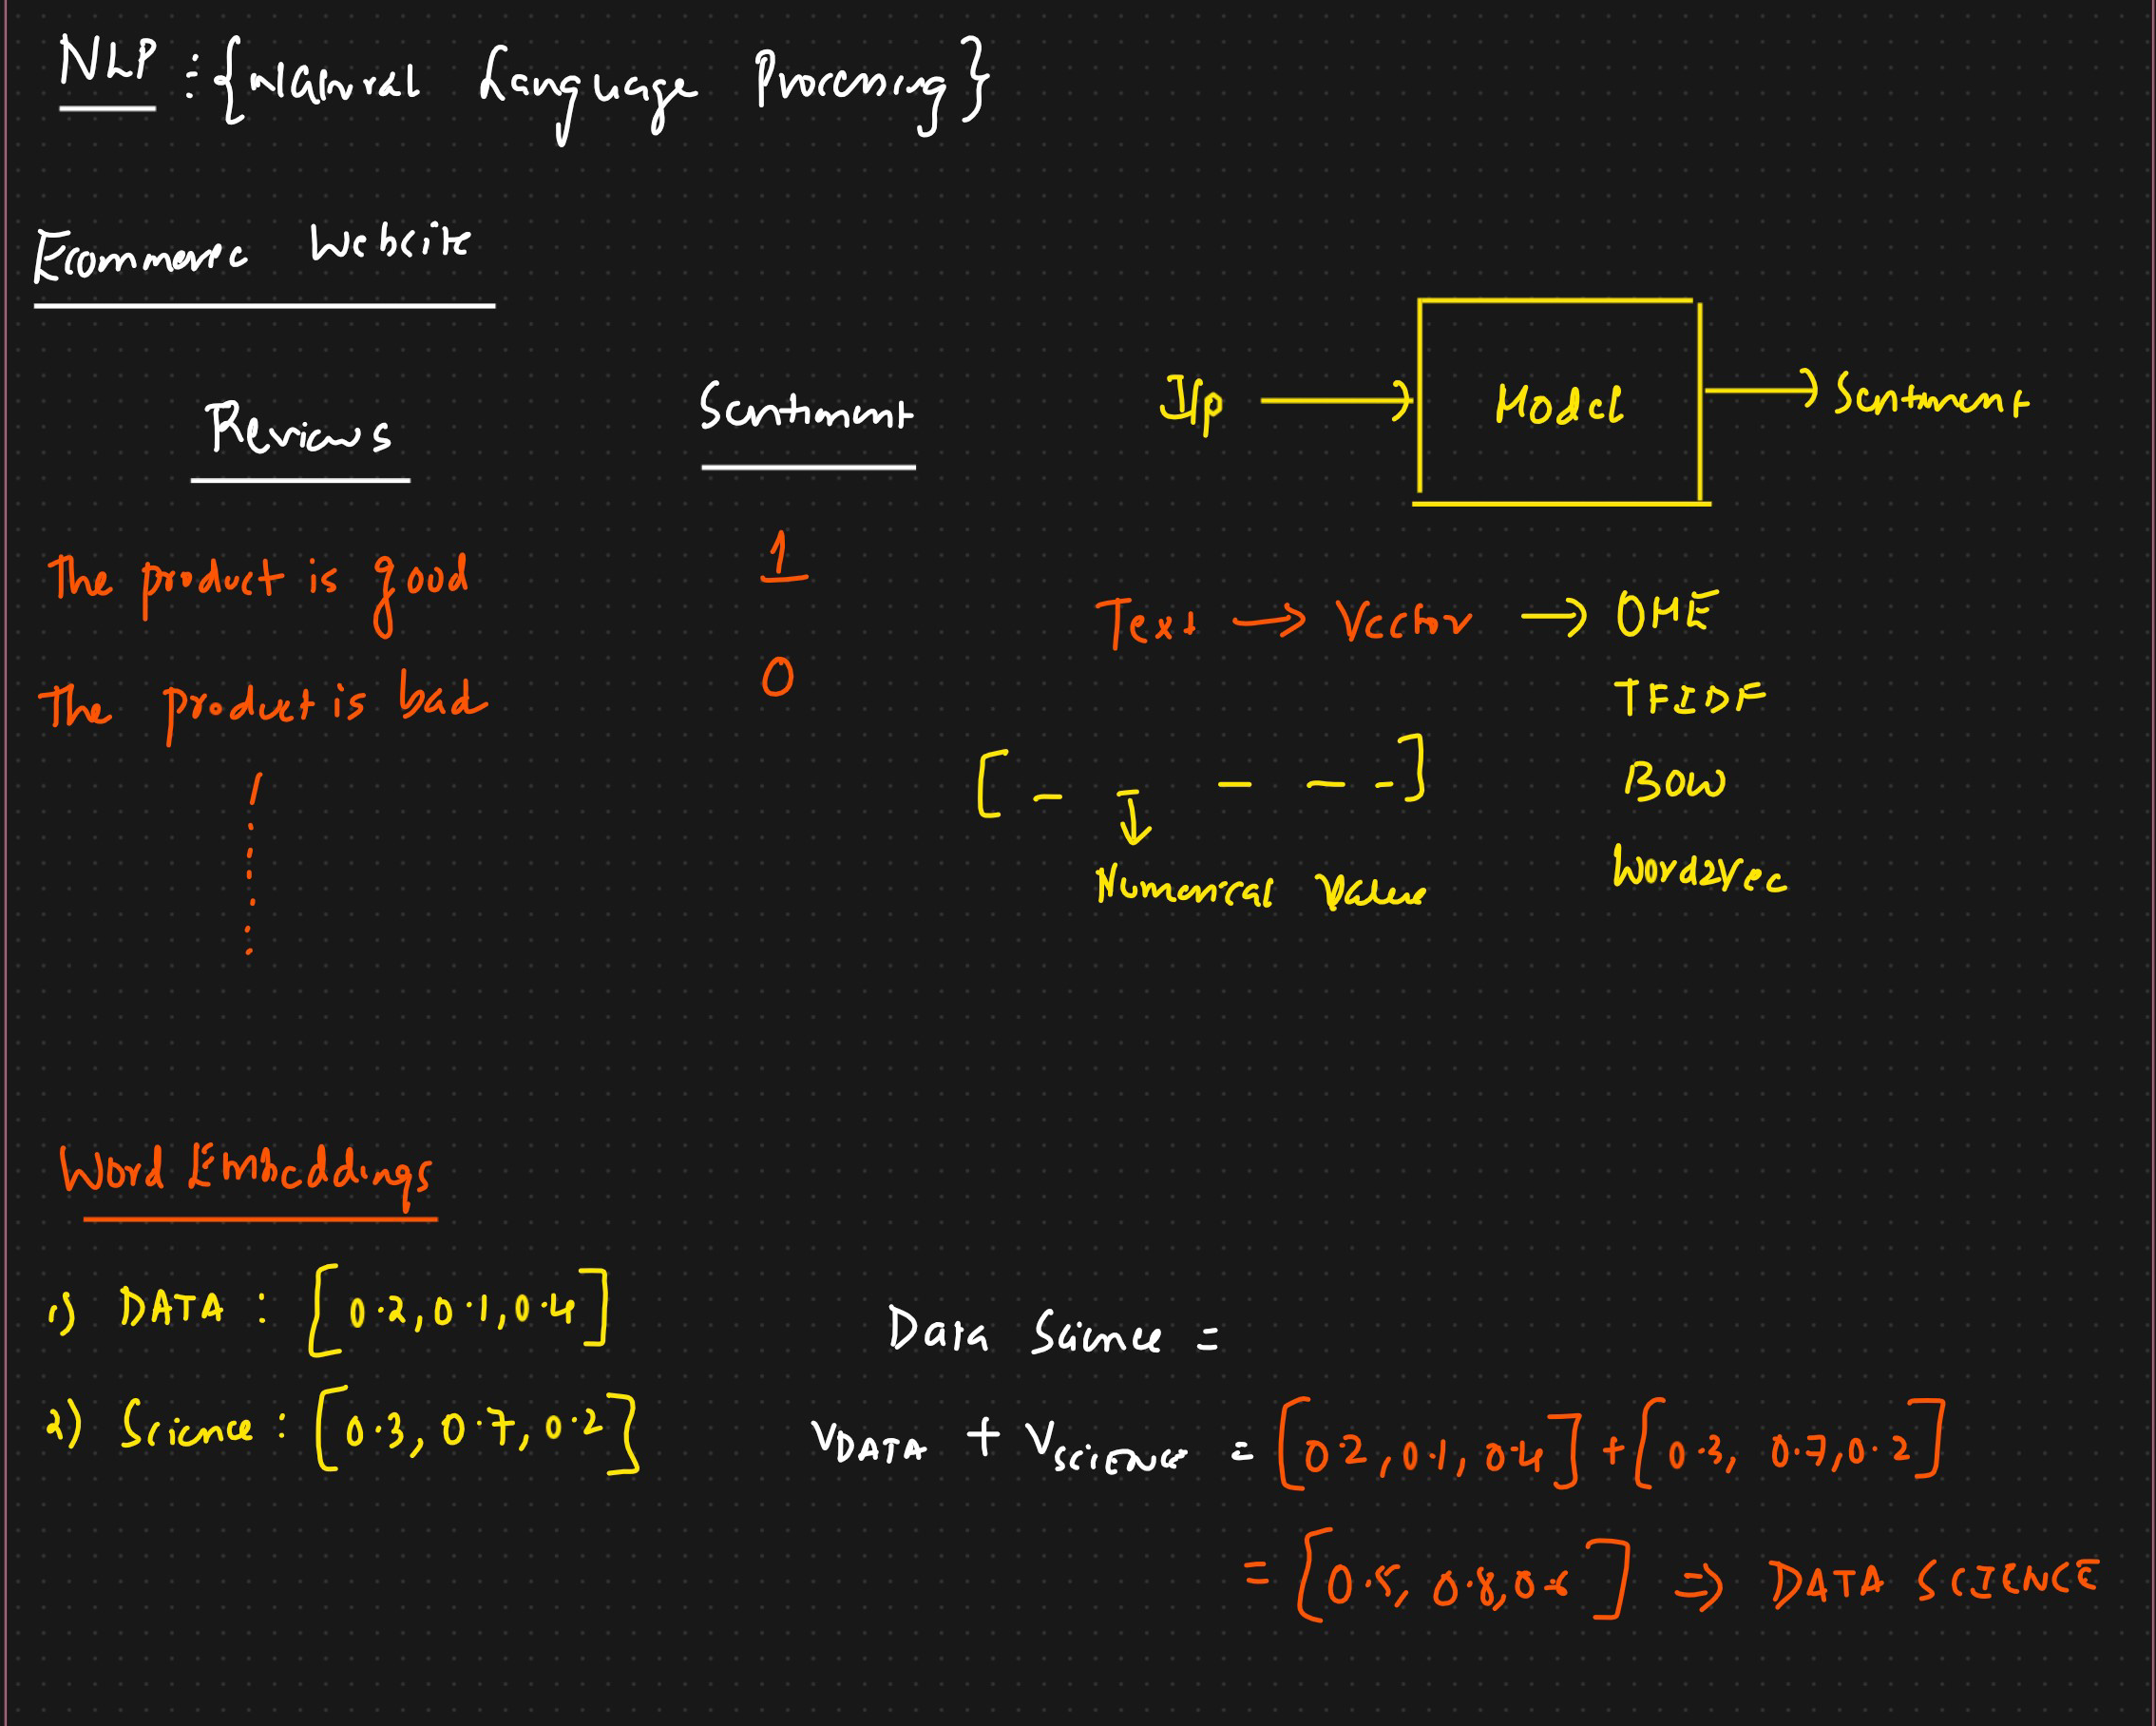 NLP : {Natural Language Processing}
Ecommerce Website
Reviews
Sentiment
I/p → Model → Sentiment
The product is good
1
The product is bad
0
Text → Vector → OHE
TFIDF
BOW
Word2Vec
[ _ _ _ _ _ ]
↓
Numerical Value
Word Embeddings
1) DATA : [0.2, 0.1, 0.4]
2) Science : [0.3, 0.7, 0.2]
Data Science =
VDATA + VSCIENCE = [0.2, 0.1, 0.4] + [0.3, 0.7, 0.2]
= [0.5, 0.8, 0.6] ⇒ DATA SCIENCE